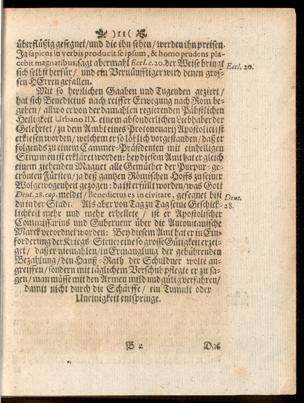 )11(
überflüßig gesegnet/und die ihn sehen/werden ihn preisen.
Ja sapiens in verbis producit se ipsum, & homo prudens pla-
cebit magnatibus, sagt abermahl Eccl. c. 20. der Weise bringt
Eccl. 20.
sich selbst herfür/ und ein Vernünfftiger wird denen gros-
sen HErren gefallen.
Mit so herrlichen Gaaben und Tugenden geziert/
hat sich Benedictus nach reiffer Erwegung nach Rom be-
geben/ allwo er von der damahlen regierenden Päbstlichen
Heiligkeit Urbano IIX. einem absonderlichen Liebhaber der
Gelehrten/ zu dem Ambt eines Protonotarij Apostolici ist
erkiesen worden/ welchem er so löblich vorgestanden/ daß er
folgends zu einem Cammer-Præsidenten mit einhelligen
Stimmen ist erkläret worden: bey diesem Amt hat er gleich
einem ziehenden Magnet alle Gemüther der Purpur-ge-
crönten Fürsten/ ja deß gantzen Römischen Hoffs zu seiner
Wolgewogenheit gezogen: da ist erfüllt worden/ was Gott
Deut. 28. cap. meldet/ Benedictus es in civitate, gesegnet bist
Deut. 28.
du in der Stadt. Als aber von Tag zu Tag seine Geschick-
lichkeit mehr und mehr erhellete/ ist er Apostolischer
Commissarius und Guberneur über die Anconitanische
Marck verordnet worden: Bey diesem Amt hat er in Ein-
forderung der Kriegs-Steuer eine so grosse Gütigkeit erzei-
get/ daß er niemahlen/ in Ermanglung der gebührenden
Bezahlung/ den Hauß-Rath der Schuldner wolte an-
greiffen/ sondern mit täglichem Verschub pflegte er zu sa-
gen/ man müsse mit den Armen mild und gütig verfahren/
damit nicht durch die Schärffe/ ein Tumult oder
Uneinigkeit entspringe.
B 2 Daß